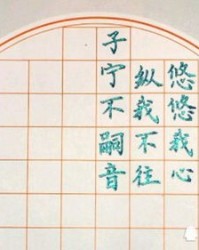 悠悠我心
纵我不往
子宁不嗣音